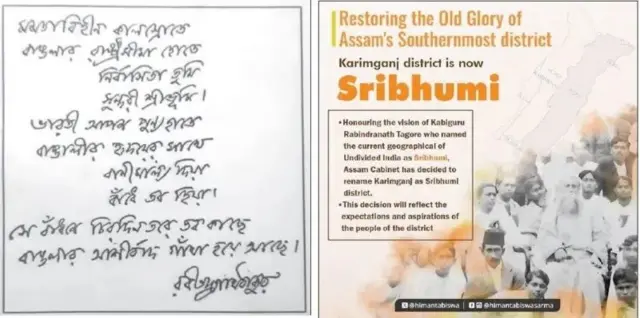 মমতাবিহীন কালস্রোতে
বাঙলার রাষ্ট্রসীমা হোতে
নির্বাসিতা তুমি
সুন্দরী শ্রীভূমি।
ভারতী আপন পুণ্যহাতে
বাঙালীর হৃদয়ের সাথে
বাণীমাল্য দিয়া
বাঁধে তব হিয়া।
সে বাঁধনে চিরদিনতরে তব কাছে
বাঙলার আশীর্বাদ গাঁথা হয়ে আছে।
রবীন্দ্রনাথ ঠাকুর
Restoring the Old Glory of
Assam's Southernmost district
Karimganj district is now
Sribhumi
• Honouring the vision of Kabiguru
Rabindranath Tagore who named
the current geographical of
Undivided India as Sribhumi,
Assam Cabinet has decided to
rename Karimganj as Sribhumi
district.
• This decision will reflect the
expectations and aspirations of
the people of the district
@himantabiswa | @himantabiswasarma